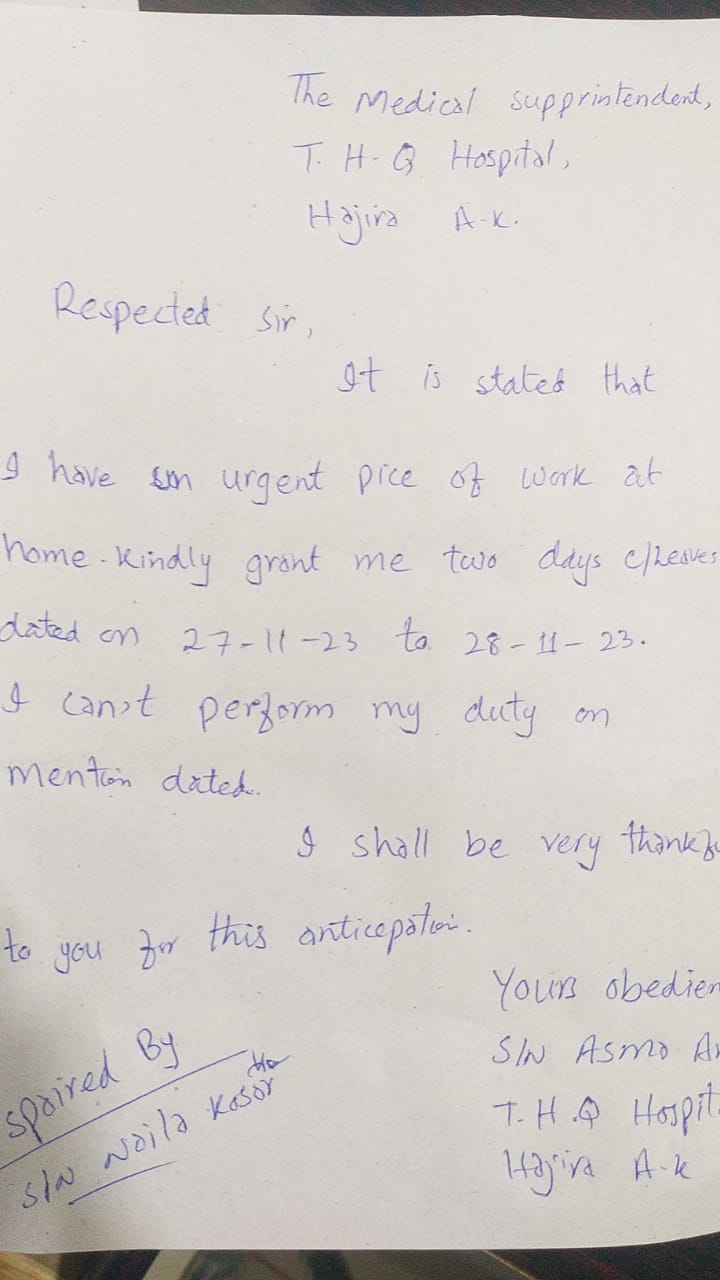 The Medical supprintendent,
T. H-Q Hospital,
Hajira A-K.
Respected Sir,
It is stated that
I have an urgent pice of work at
home. Kindly grant me two days c/Leaves
dated on 27-11-23 to 28-11-23.
I can,t perform my duty on
mention dated.
I shall be very thankfu
to you for this anticepation.
Yours obedien
S/N Asma
T.H.Q Hospit
Hajira A-k
spaired By
S/N Naila Kosar